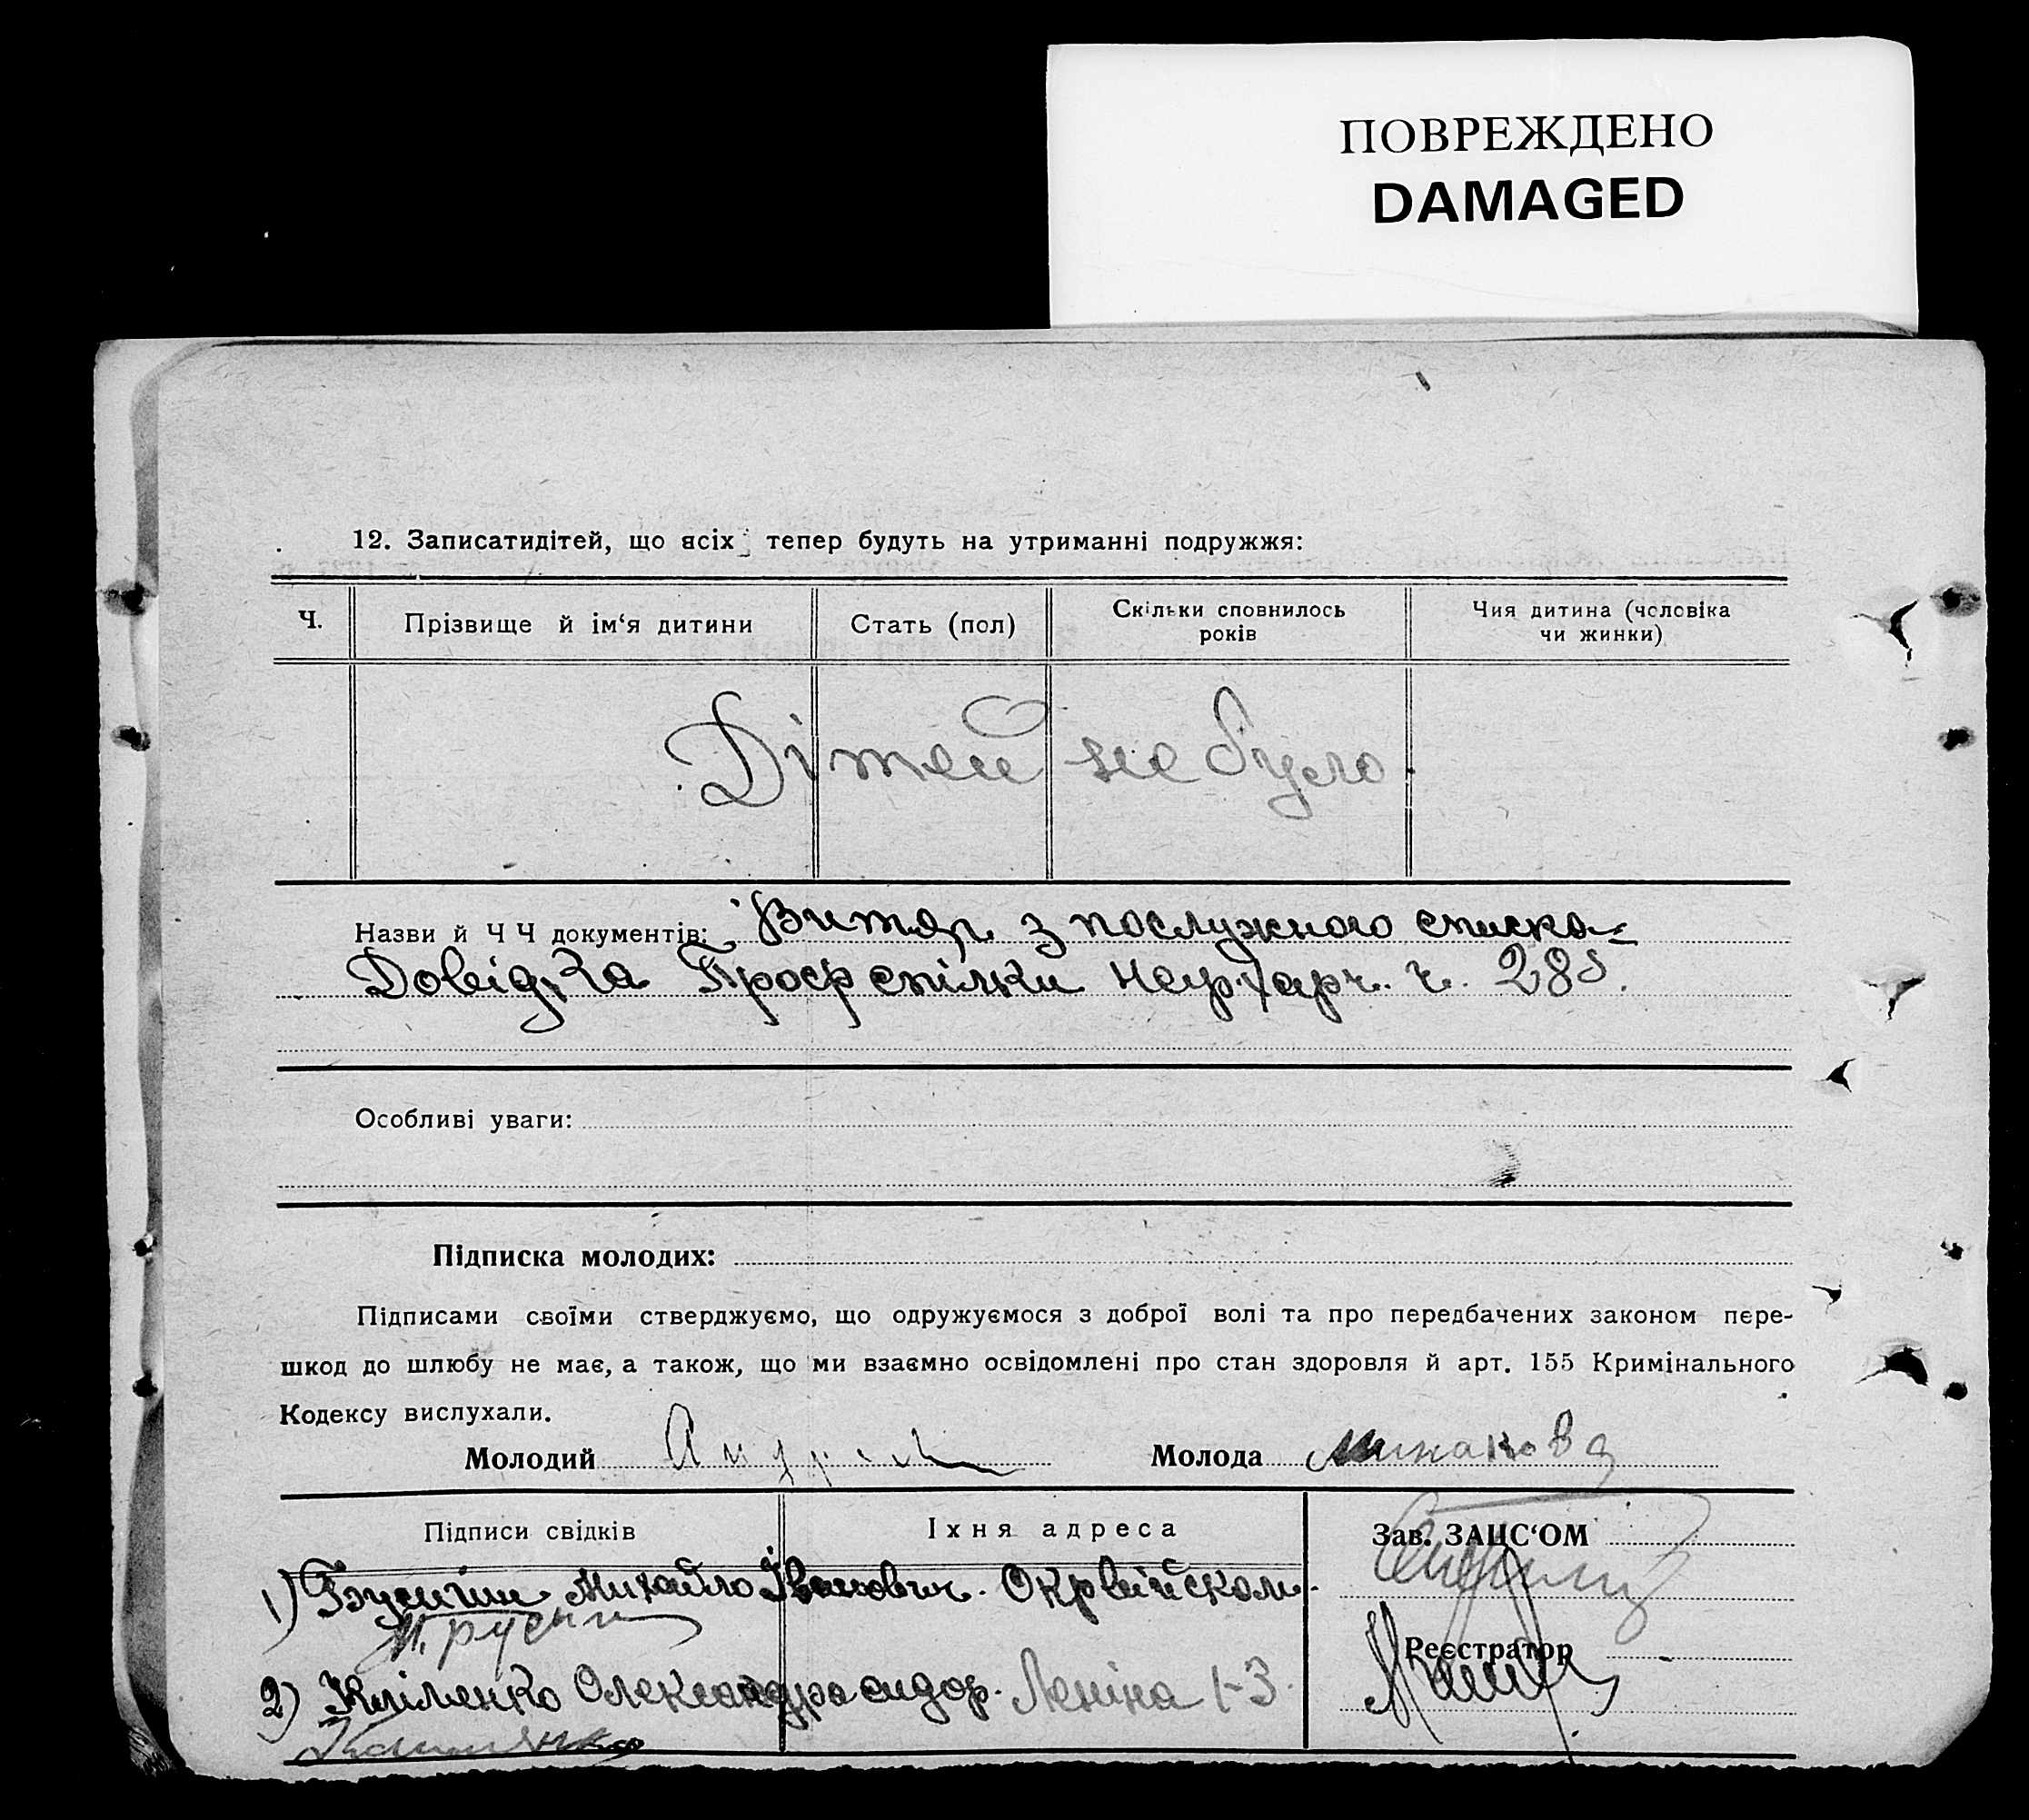 ПОВРЕЖДЕНО
DAMAGED
12. Записатидітей, що всіх тепер будуть на утриманні подружжя:
Ч.
Прізвище й ім‘я дитини
Стать (пол)
Скільки сповнилось років
Чия дитина (чоловіка чи жинки)
Дітей не було
Назви й Ч Ч документів: Витяг з послужного списка
Довідка Проф спілки Нарх ч. 285.
Особливі уваги:
Підписка молодих:
Підписами своїми стверджуємо, що одружуємося з доброї волі та про передбачених законом пере-
шкод до шлюбу не має, а також, що ми взаємно освідомлені про стан здоровля й арт. 155 Кримінального
Кодексу вислухали.
Молодий
Молода Минакова
Підписи свідків
Їхня адреса
Зав. ЗАЦС‘ОМ
1) Михайло Іванович. Окрвійськом.
Реєстратор
2) Кліменко Олександра сидор. Леніна 1-3.